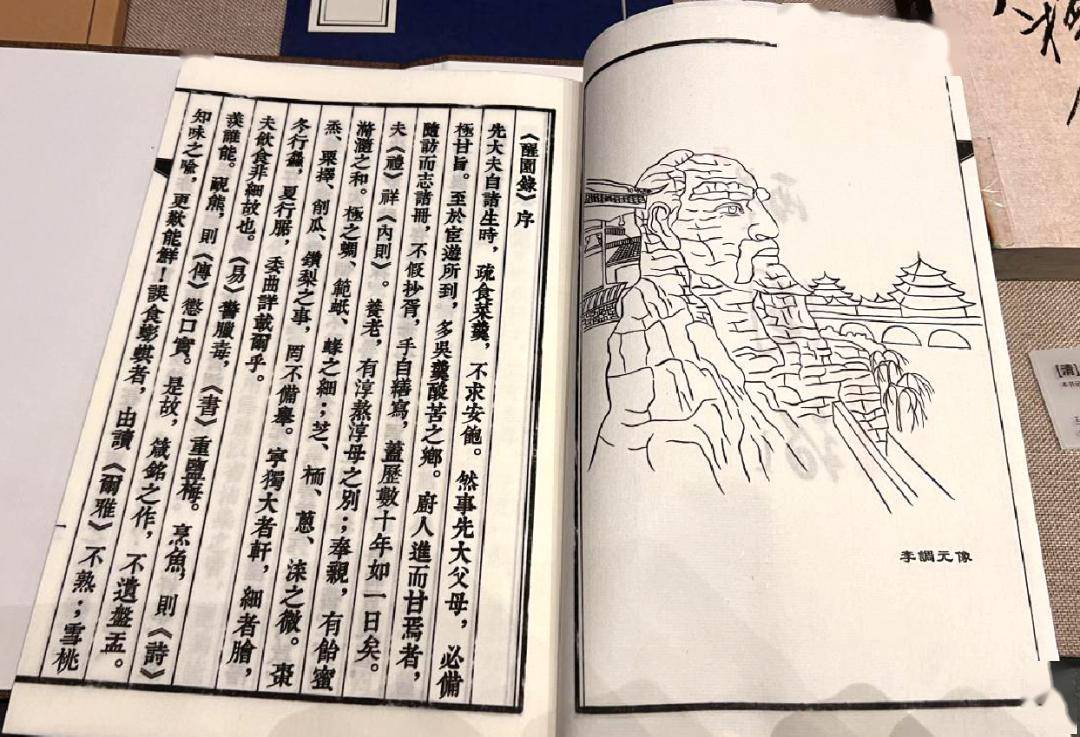 《醒園錄》序
先大夫自諸生時，疏食菜羹，不求安飽。然事先大父母，必備
極甘旨。至於宦遊所到，多吳羹酸苦之鄉。廚人進而甘焉者，
隨訪而志諸冊，不假抄胥，手自繕寫，蓋歷數十年如一日矣。
夫《禮》祥《內則》。養老，有淳熬淳母之別；奉親，有飴蜜
滫瀡之和。極之蜩、範蚳、蝝之細；芝、栭、蔥、渿之微。棗
烝、栗擇、削瓜、鑽梨之事，罔不備舉。寧獨大者軒，細者膾，
冬行鱻，夏行腒，委曲詳載爾乎。
夫飲食非細故也。《易》警臘毒，《書》重鹽梅。烹魚，則《詩》
羨誰能。熊，則《傳》懲口實。是故，箴銘之作，不遺盤盂。
知味之喻，更歎能鮮！誤食蟛蜞者，由讀《爾雅》不熟；雪桃
一
李調元像
[清]